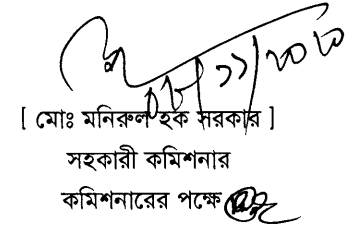 [ মোঃ মনিরুল হক সরকার ]
সহকারী কমিশনার
কমিশনারের পক্ষে